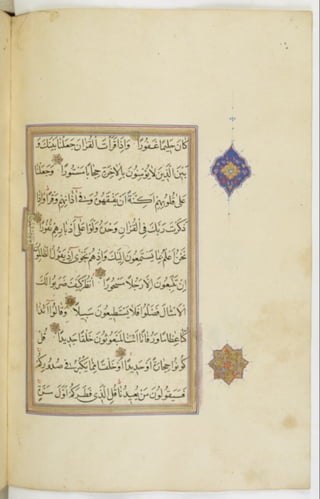 كَانَ حَلِيمًا غَفُورًا وَإِذَا قَرَأْتَ الْقُرْآنَ جَعَلْنَا بَيْنَكَ وَ
بَيْنَ الَّذِينَ لَا يُؤْمِنُونَ بِالْآخِرَةِ حِجَابًا مَسْتُورًا وَجَعَلْنَا
عَلَى قُلُوبِهِمْ أَكِنَّةً أَنْ يَفْقَهُوهُ وَفِي آذَانِهِمْ وَقْرًا وَإِذَا
ذَكَرْتَ رَبَّكَ فِي الْقُرْآنِ وَحْدَهُ وَلَّوْا عَلَى أَدْبَارِهِمْ نُفُورًا
نَحْنُ أَعْلَمُ بِمَا يَسْتَمِعُونَ إِلَيْكَ وَإِذْ هُمْ نَجْوَى إِذْ يَقُولُ الظَّالِمُونَ
إِنْ تَتَّبِعُونَ إِلَّا رَجُلًا مَسْحُورًا انْظُرْ كَيْفَ ضَرَبُوا لَكَ
الْأَمْثَالَ فَضَلُّوا فَلَا يَسْتَطِيعُونَ سَبِيلًا وَقَالُوا أَئِذَا
كُنَّا عِظَامًا وَرُفَاتًا أَئِنَّا لَمَبْعُوثُونَ خَلْقًا جَدِيدًا قُلْ
كُونُوا حِجَارَةً أَوْ حَدِيدًا أَوْ خَلْقًا مِمَّا يَكْبُرُ فِي صُدُورِكُمْ
فَسَيَقُولُونَ مَنْ يُعِيدُنَا قُلِ الَّذِي فَطَرَكُمْ أَوَّلَ مَرَّةٍ